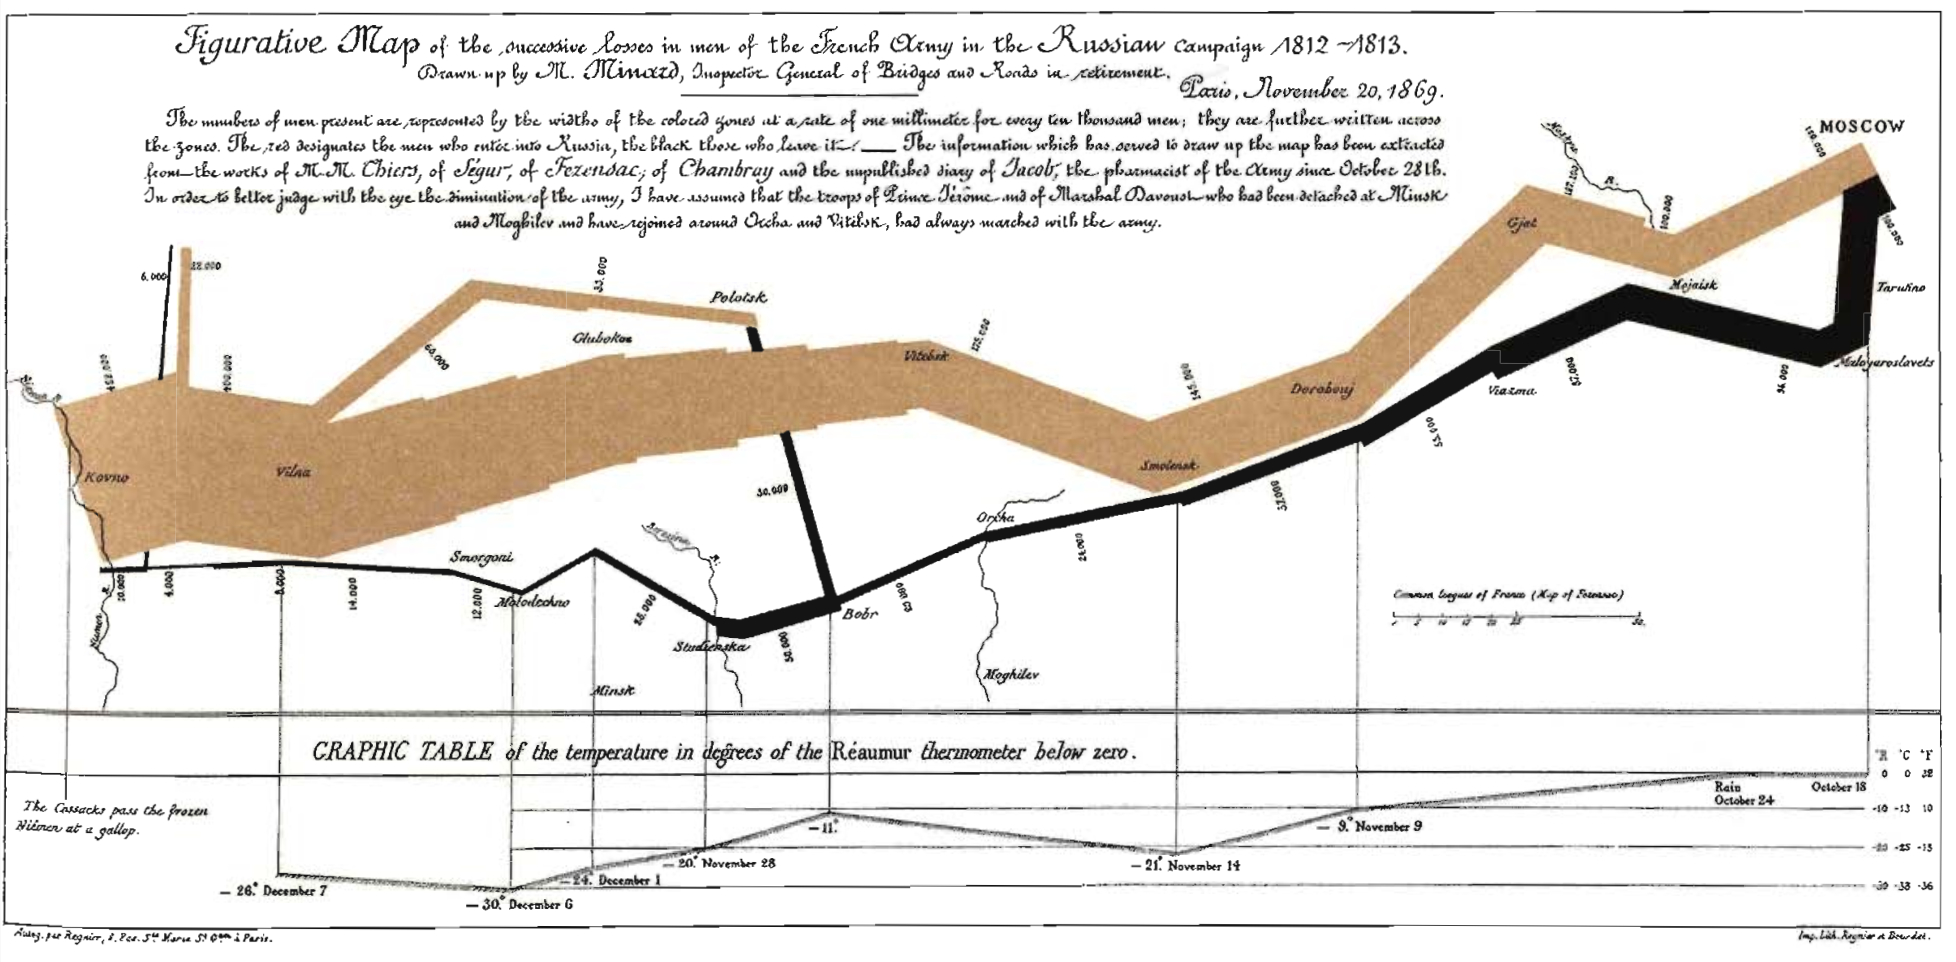 Figurative Map of the successive losses in men of the French Army in the Russian campaign 1812–1813.
Drawn up by M. Minard, Inspector General of Bridges and Roads in retirement.
Paris, November 20, 1869.
The numbers of men present are represented by the widths of the colored zones at a rate of one millimeter for every ten thousand men; they are further written across
the zones. The red designates the men who enter into Russia, the black those who leave it. — The information which has served to draw up the map has been extracted
from the works of M. M. Thiers, of Ségur, of Fezensac, of Chambray and the unpublished diary of Jacob, the pharmacist of the Army since October 28th.
In order to better judge with the eye the diminution of the army, I have assumed that the troops of Prince Jérôme and of Marshal Davoust who had been detached at Minsk
and Moghilev and have rejoined around Orcha and Vitebsk, had always marched with the army.
MOSCOW
100.000
Moskva R.
127.100
100.000
Gjat
100.000
Mojaisk
Tarutino
6.000
22.000
33.000
Polotsk
Glubokoe
60.000
400.000
Vitebsk
175.000
145.000
Dorobouj
Viazma
37.000
96.000
Maloyaroslavets
55.000
Niemen R.
Kovno
Vilna
Smolensk
37.000
30.000
Orcha
24.000
Berezina R.
Smorgoni
Molodechno
Studienska
Bobr
Minsk
Moghilev
4.000
8.000
14.000
12.000
50.000
Niemen R.
Common leagues of France (Map of Fezensac)
1 5 10 15 20 25 50.
GRAPHIC TABLE of the temperature in degrees of the Réaumur thermometer below zero.
°R °C °F
0 0 32
-10 -13 10
-20 -25 -13
-30 -38 -36
The Cossacks pass the frozen
Niemen at a gallop.
Rain
October 24
October 18
— 9.° November 9
— 21.° November 14
—11.°
— 20.° November 28
— 24.° December 1
— 30.° December 6
— 26.° December 7
Autog. par Regnier, 8. Pas. Ste Marie St Gain à Paris.
Imp. Lith. Regnier et Dourdet.